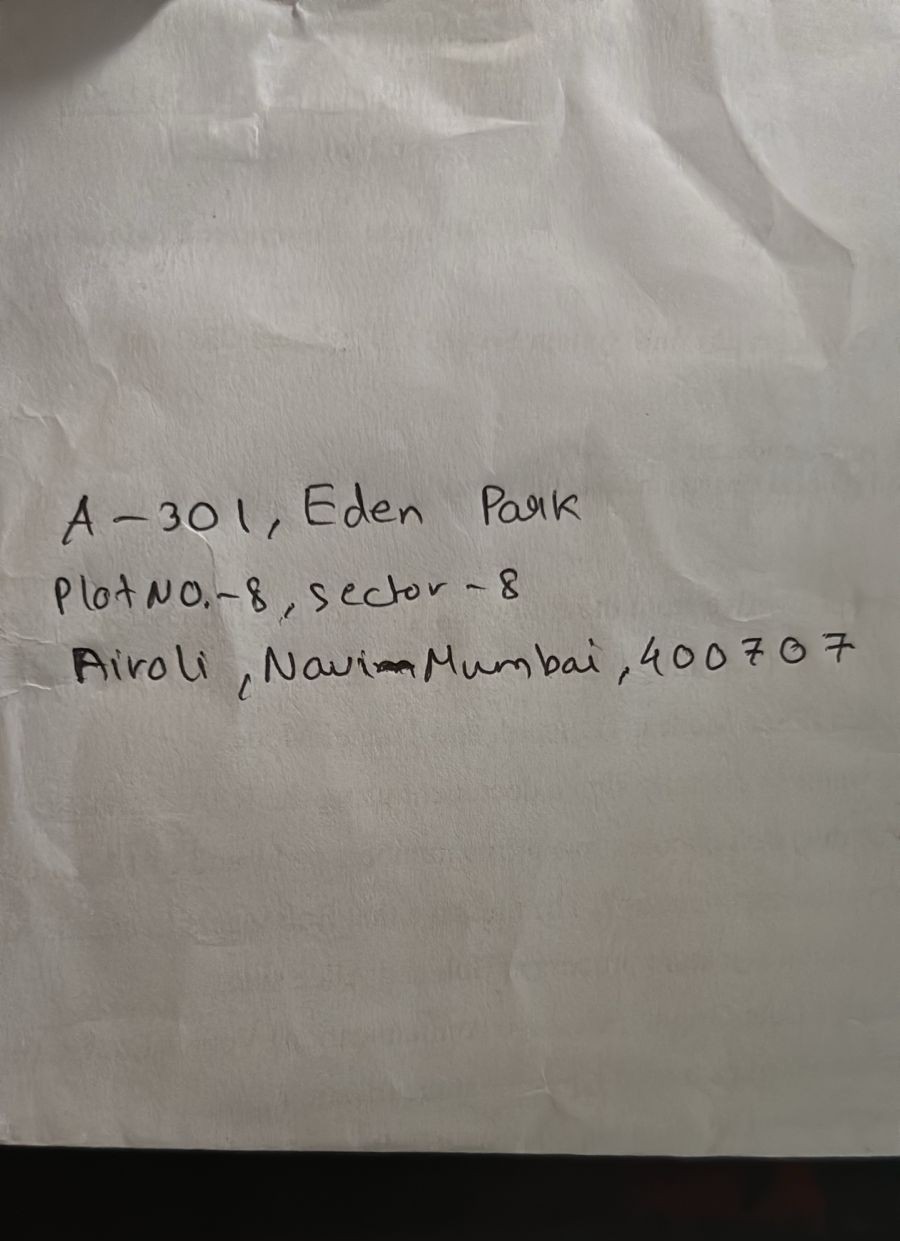 A-301, Eden Park
Plot NO.-8, sector-8
Airoli, Navi Mumbai, 400707